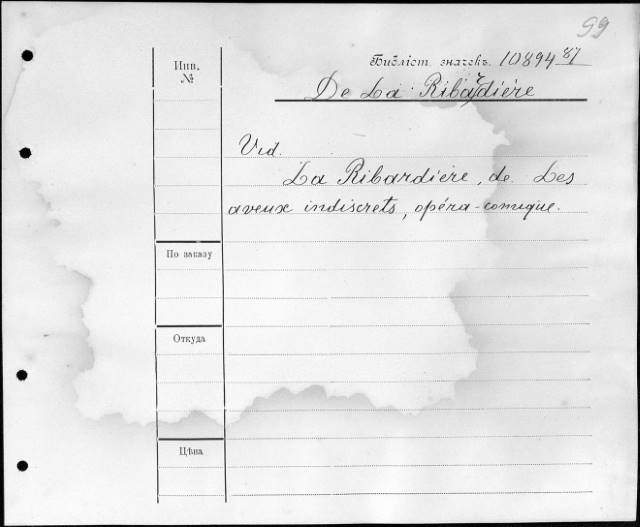 59
Инв. №
Библіот. значекъ. 10894 87/
De La Ribardière
Vid.
La Ribardière, de. Les
aveux indiscrets, opéra-comique.
По заказу
Откуда
Цѣна